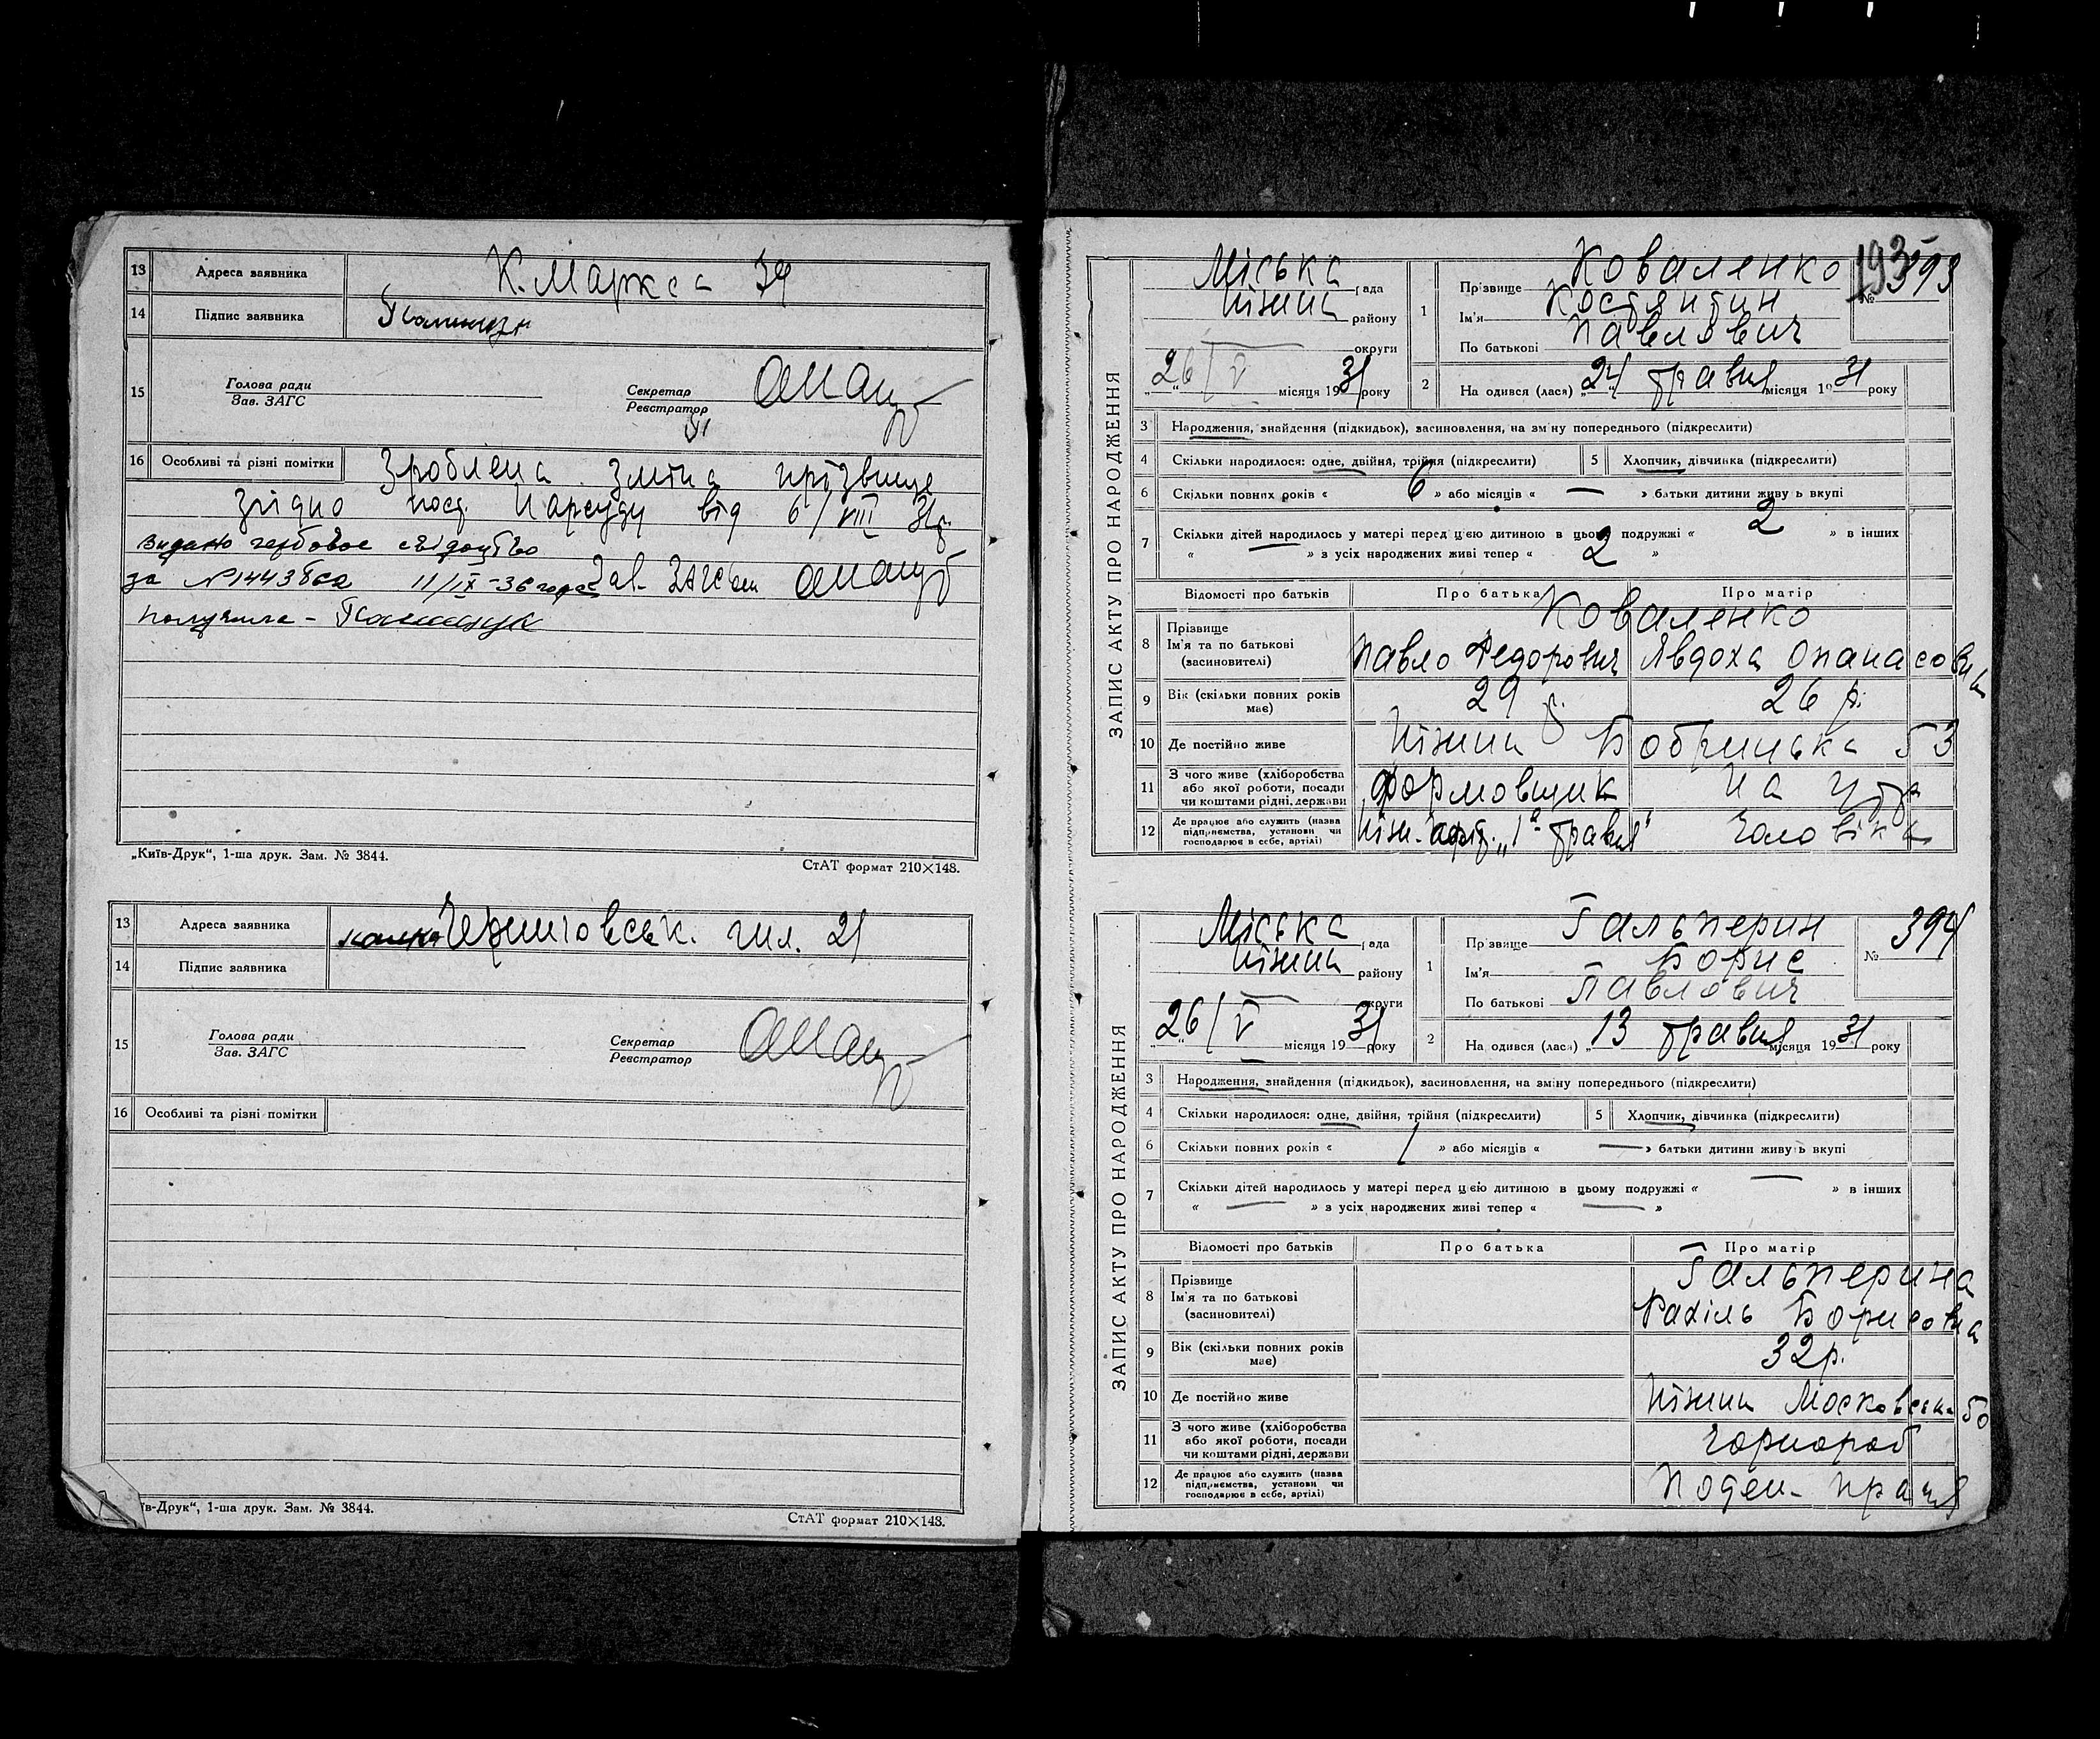 13 Адреса заявника К. Маркса 39
14 Підпис заявника
15 Голова ради
Зав. ЗАГС
Секретар
Реєстратор
16 Особливі та різні помітки Зроблена зміна прізвище
згідно пост. Нарсуду від 6/VIII 31р.
видано гербовое свідоцтво
за № 11/IX-36 года Зав. Загсом
получила -
„Київ-Друк“, 1-ша друк. Зам. № 3844.
СтАТ формат 210×148.
13 Адреса заявника 21
14 Підпис заявника
15 Голова ради
Зав. ЗАГС
Секретар
Реєстратор
16 Особливі та різні помітки
їв-Друк“, 1-ша друк. Зам. № 3844.
СтАТ формат 210×148.
ЗАПИС АКТУ ПРО НАРОДЖЕННЯ
Міська рада
Ніжин району
округи
26/V місяця 1931 року
1 Прізвище Коваленко
Ім'я Костянтин
По батькові Павлович
193
№ 393
2 На одився (лася) „24 травня місяця 1931 року
3 Народження, знайдення (підкидьок), засиновлення, на зміну попереднього (підкреслити)
4 Скільки народилося: одне, двійня, трійня (підкреслити) 5 Хлопчик, дівчинка (підкреслити)
6 Скільки повних років « 6 » або місяців « — » батьки дитини живуь вкупі
7 Скільки дітей народилось у матері перед цією дитиною в цьому подружжі « 2 » в інших
« » з усіх народжених живі тепер « 2 »
Відомості про батьків Про батька Про матір
8 Прізвище Коваленко
Ім'я та по батькові Павло Федорович Явдоха Опанасовна
(засиновителі)
9 Вік (скільки повних років має) 29 р. 26 р.
10 Де постійно живе Ніжин Бобрицька 53
11 З чого живе (хліборобства або якої роботи, посади чи коштами рідні, держави формовщик На утр
12 Де працює або служить (назва підприємства, установи чи господарює в себе, артілі) Ніж. „1е травня“ чоловіка
ЗАПИС АКТУ ПРО НАРОДЖЕННЯ
Міська рада
Ніжин району
округи
26/V місяця 1931 року
1 Прізвище Гальперин
Ім'я Борис
По батькові Павлович
№ 394
2 На одився (лася) „13 травня місяця 1931 року
3 Народження, знайдення (підкидьок), засиновлення, на зміну попереднього (підкреслити)
4 Скільки народилося: одне, двійня, трійня (підкреслити) 5 Хлопчик, дівчинка (підкреслити)
6 Скільки повних років « 1 » або місяців « — » батьки дитини живуь вкупі
7 Скільки дітей народилось у матері перед цією дитиною в цьому подружжі « — » в інших
« — » з усіх народжених живі тепер « — »
Відомості про батьків Про батька Про матір
8 Прізвище Гальперина
Ім'я та по батькові Рахіль Борисовна
(засиновителі)
9 Вік (скільки повних років має) 32р.
10 Де постійно живе Ніжин Московська 50
11 З чого живе (хліборобства або якої роботи, посади чи коштами рідні, держави чорнороб
12 Де працює або служить (назва підприємства, установи чи господарює в себе, артілі) Поден- праця